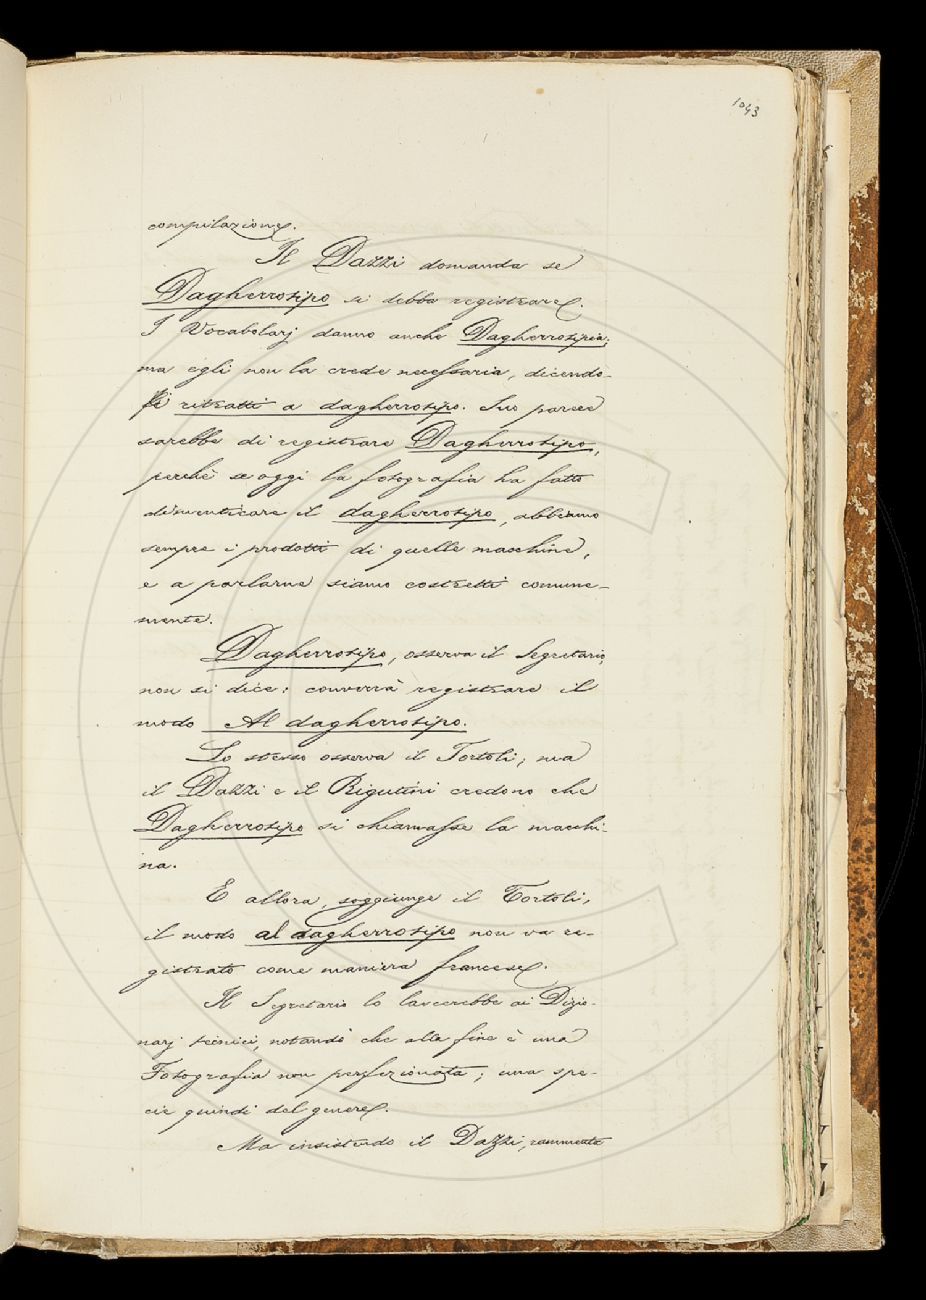 1043
compilazione.
Il Dazzi domanda se
Dagherrotipo si debba registrare.
I Vocabolarj danno anche Dagherrotipia;
ma egli non la crede necessaria, dicendo-
si ritratti a dagherrotipo. Suo parere
sarebbe di registrare Dagherrotipo,
perchè se oggi la fotografia ha fatto
dimenticare il dagherrotipo, abbiamo
sempre i prodotti di quelle macchine,
e a parlarne siamo costretti comune-
mente.
Dagherrotipo, osserva il Segretario,
non si dice: converrà registrare il
modo Al dagherrotipo.
Lo stesso osserva il Tortoli; ma
il Dazzi e il Rigutini credono che
Dagherrotipo si chiamasse la macchi-
na.
E allora, soggiunge il Tortoli,
il modo al dagherrotipo non va re-
gistrato come maniera francese.
Il Segretario lo lascerebbe ai Dizio-
narj tecnici, notando che alla fine è una
Fotografia non perfezionata; una spe-
cie quindi del genere.
Ma insistendo il Dazzi, rammenta